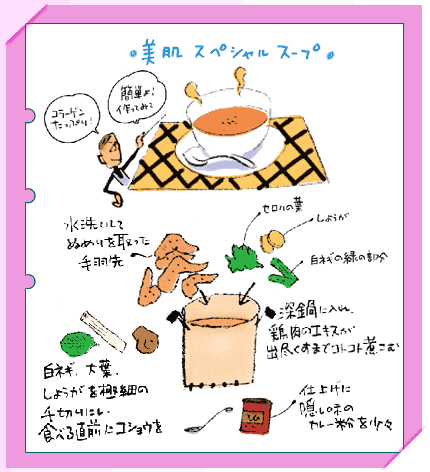 美肌 スペシャル スープ
コラーゲン
たっぷり!
簡単よ!
作ってみて
セロリの葉
しょうが
白ネギの緑の部分
水洗いして
ぬめりを取った
手羽先
深鍋に入れ、
鶏肉のエキスが
出尽くすまでコトコト煮こむ
白ネギ、大葉、
しょうがを極細の
千切りにし、
食べる直前にコショウを
仕上げに
隠し味の
カレー粉を少々